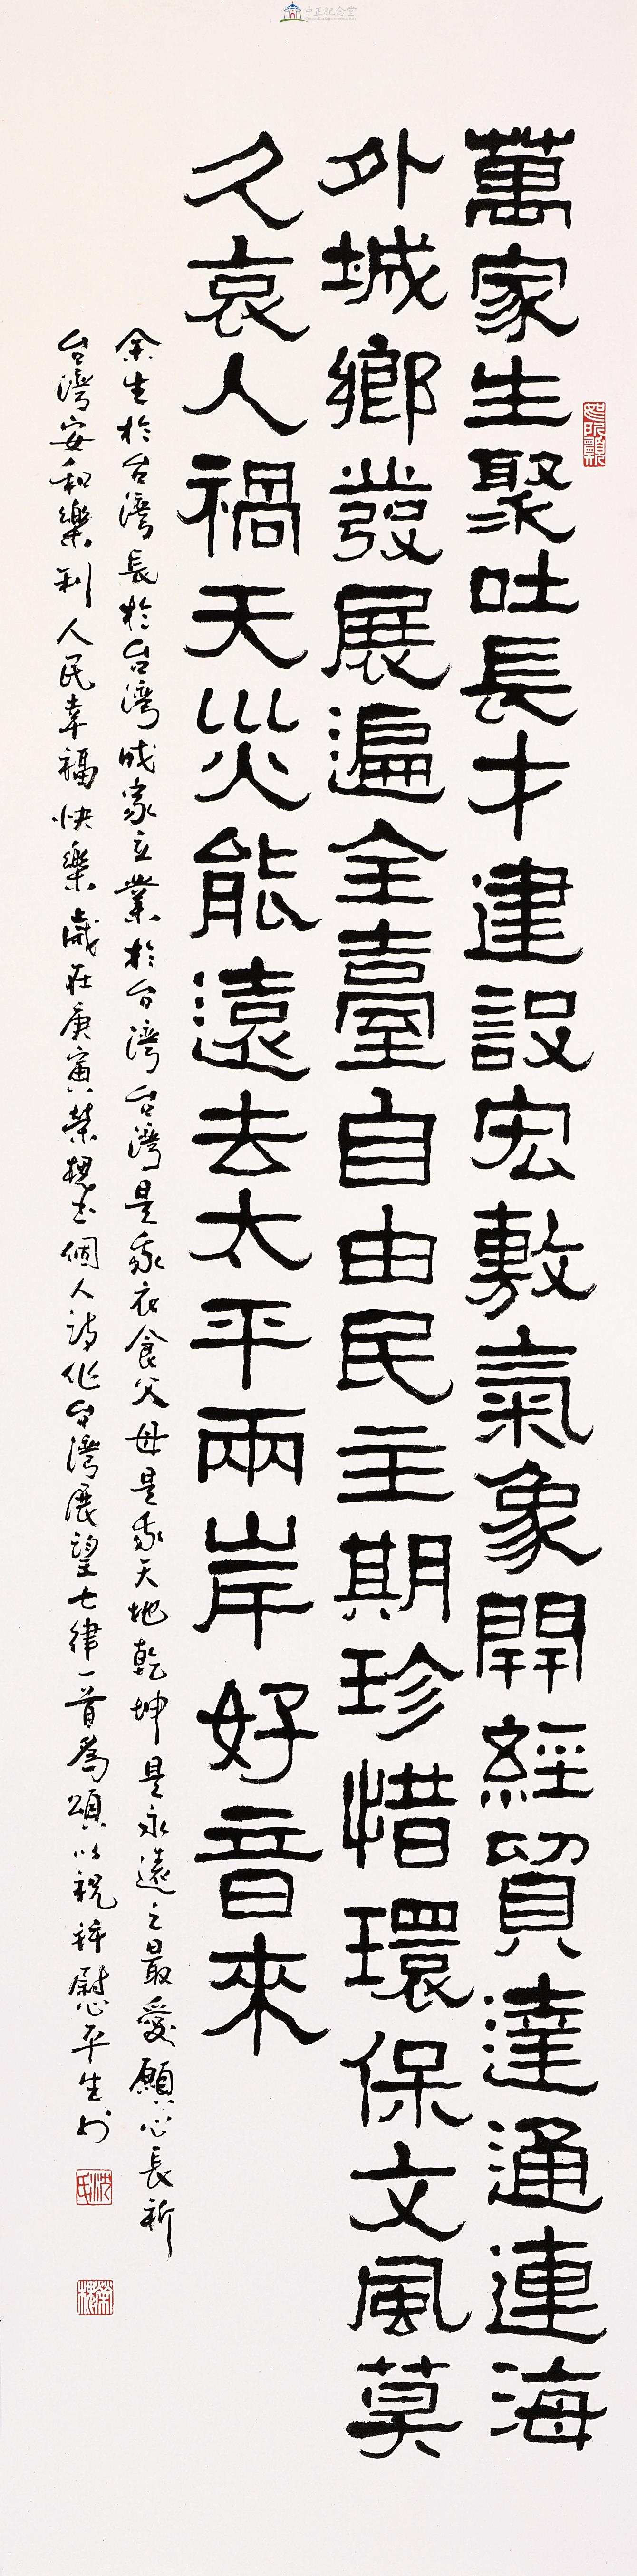 中正紀念堂
萬家生聚吐長才建設宏敷氣象開經貿達通連海
外城鄉發展遍全臺自由民主期珍惜環保文風莫
久哀人禍天災能遠去太平兩岸好音來
余生於台灣長於台灣成家立業於台灣台灣是我衣食父母是我天地乾坤是永遠之最愛願心長祈
台灣安和樂利人民幸福快樂歲在庚寅榮槐書個人詩作台灣展望七律一首為頌以祝并慰平生
沈氏
榮槐